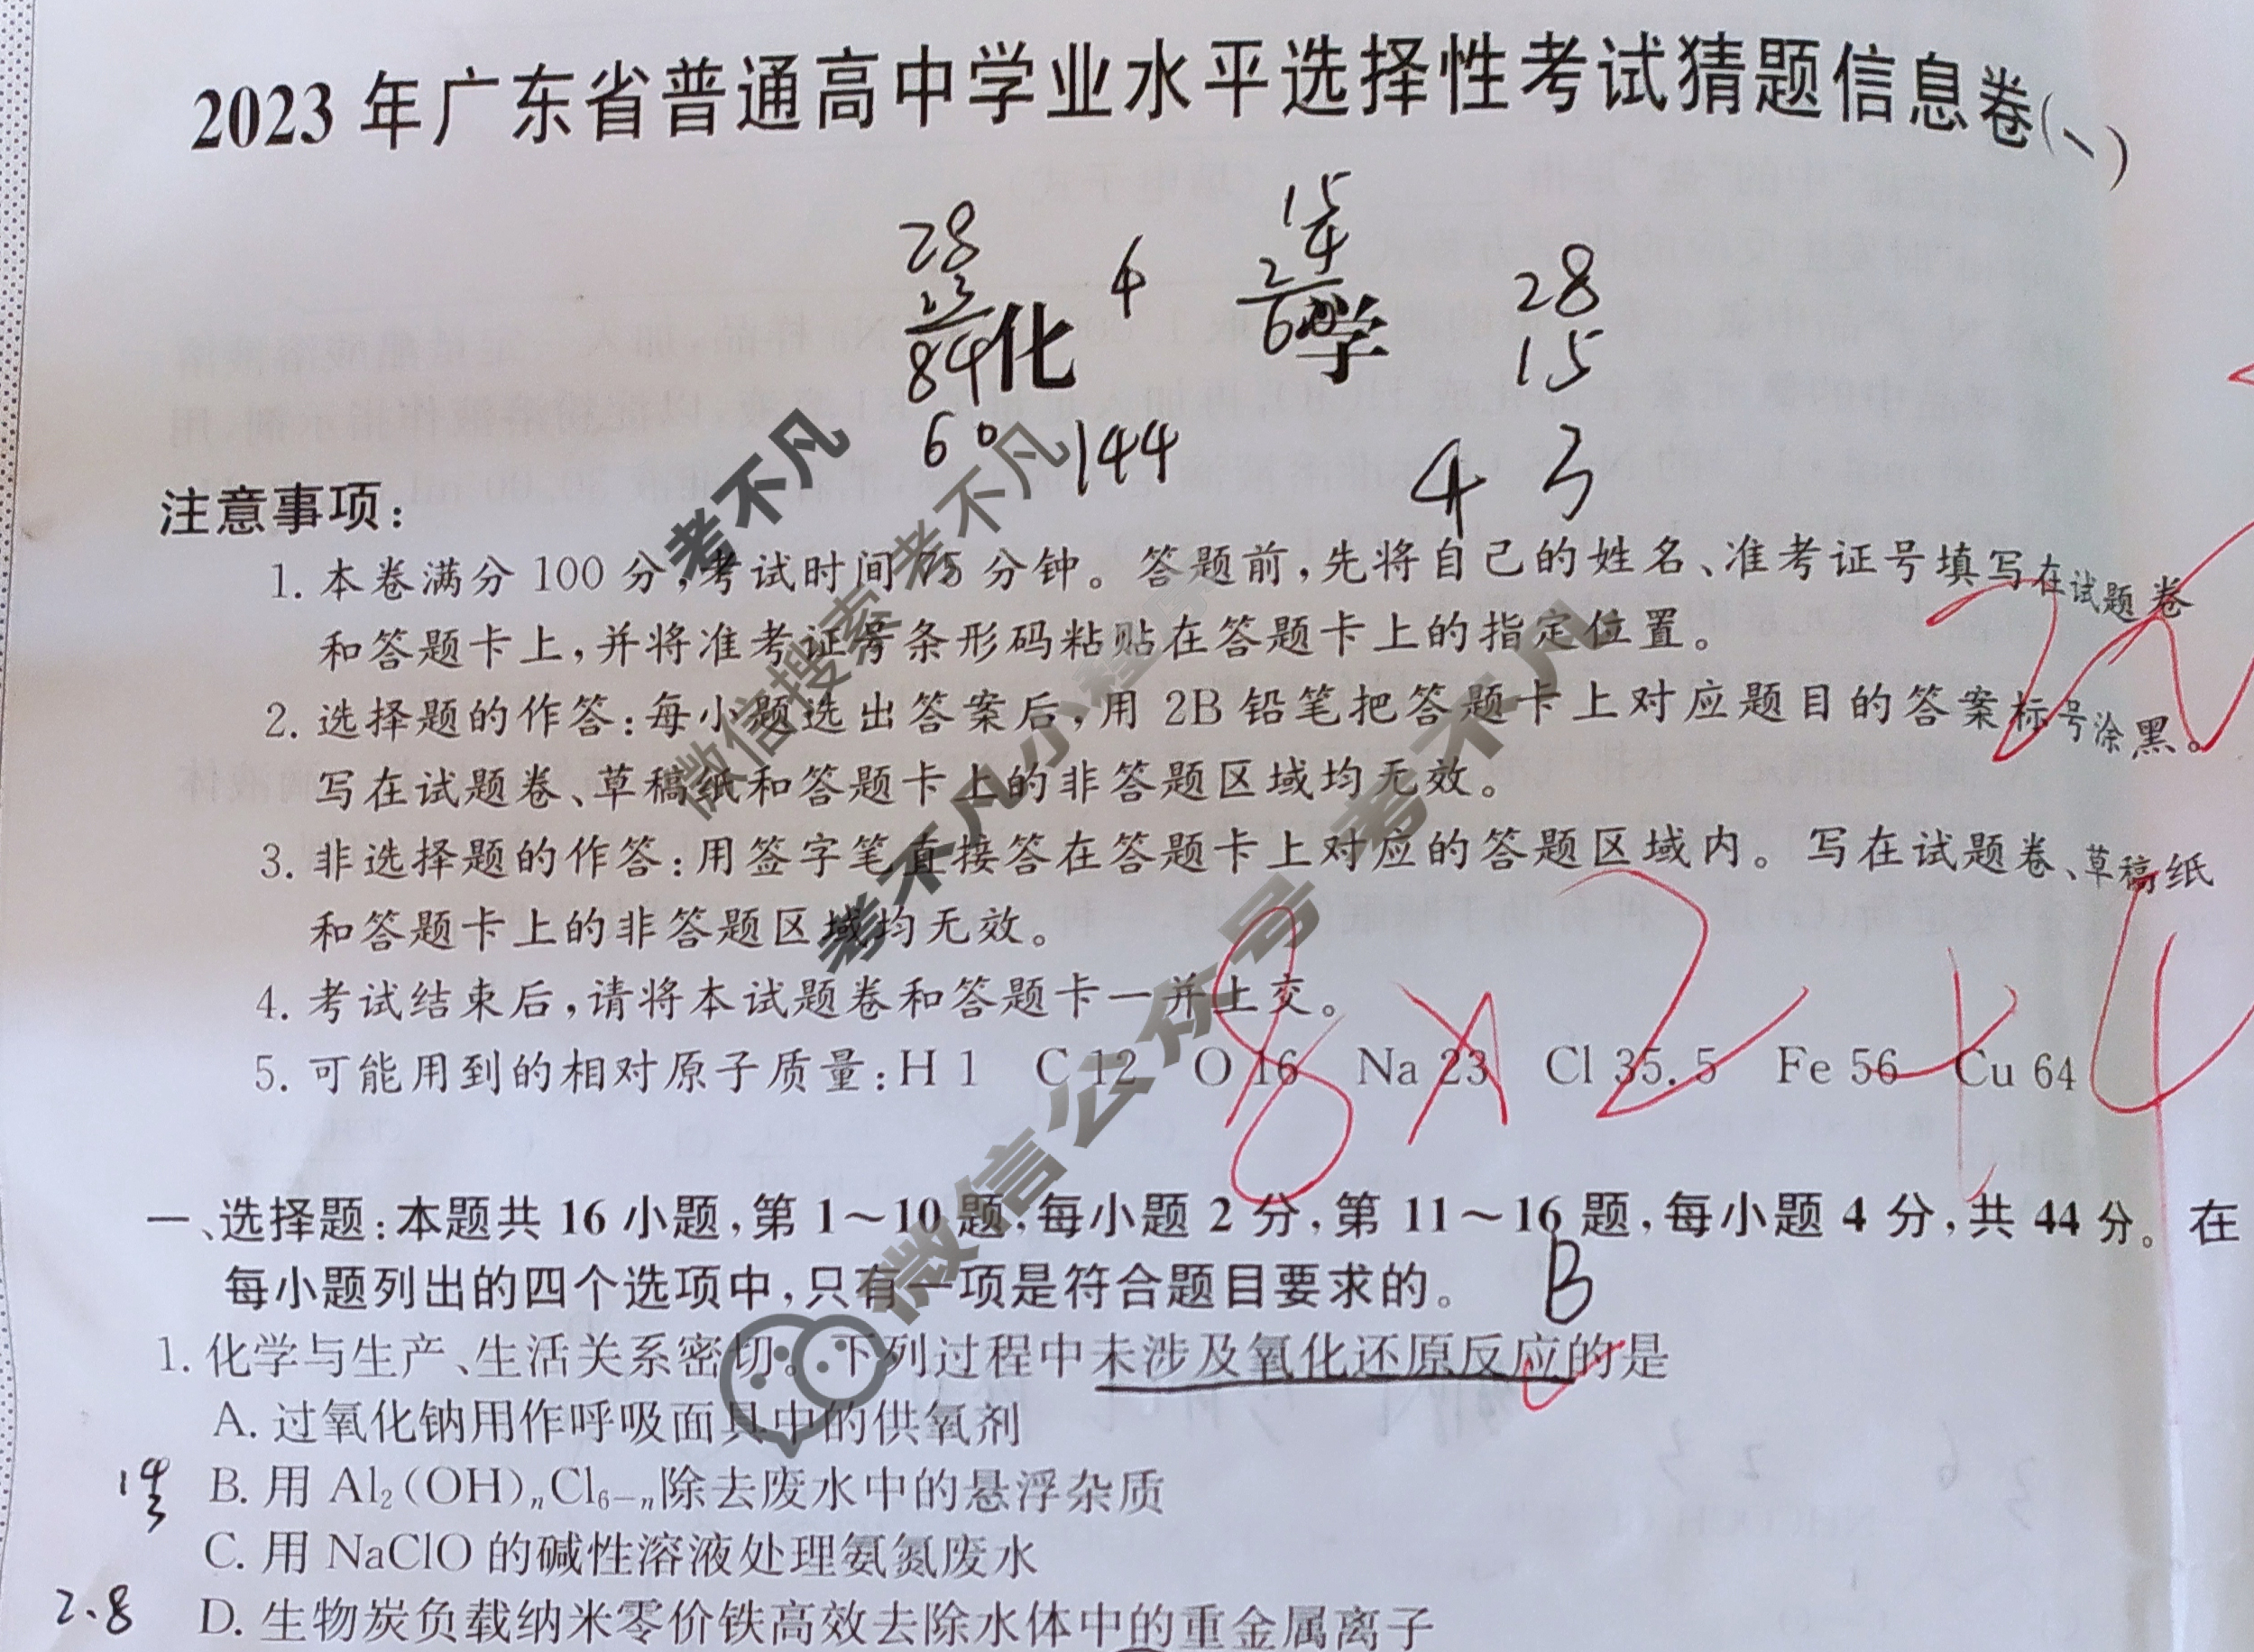 2023年广东省普通高中学业水平选择性考试猜题信息卷(一)
28 15
23 4 4 28
84 化 2 60 学 15
60 144 4 3
注意事项:
1. 本卷满分100分,考试时间75分钟。答题前,先将自己的姓名、准考证号填写在试题卷
和答题卡上,并将准考证号条形码粘贴在答题卡上的指定位置。
2. 选择题的作答:每小题选出答案后,用2B铅笔把答题卡上对应题目的答案标号涂黑。
写在试题卷、草稿纸和答题卡上的非答题区域均无效。
3. 非选择题的作答:用签字笔直接答在答题卡上对应的答题区域内。写在试题卷、草稿纸
和答题卡上的非答题区域均无效。
4. 考试结束后,请将本试题卷和答题卡一并上交。
5. 可能用到的相对原子质量:H 1 C 12 O 16 Na 23 Cl 35.5 Fe 56 Cu 64
8×2+4
一、选择题:本题共16小题,第1~10题,每小题2分,第11~16题,每小题4分,共44分。在
每小题列出的四个选项中,只有一项是符合题目要求的。 B
1. 化学与生产、生活关系密切。下列过程中未涉及氧化还原反应的是
A. 过氧化钠用作呼吸面具中的供氧剂
B. 用Al₂(OH)ₙCl₆₋ₙ除去废水中的悬浮杂质
C. 用NaClO的碱性溶液处理氨氮废水
2.8 D. 生物炭负载纳米零价铁高效去除水体中的重金属离子
考不凡
微信搜索考不凡
考不凡小程序
微信公众号 考不凡